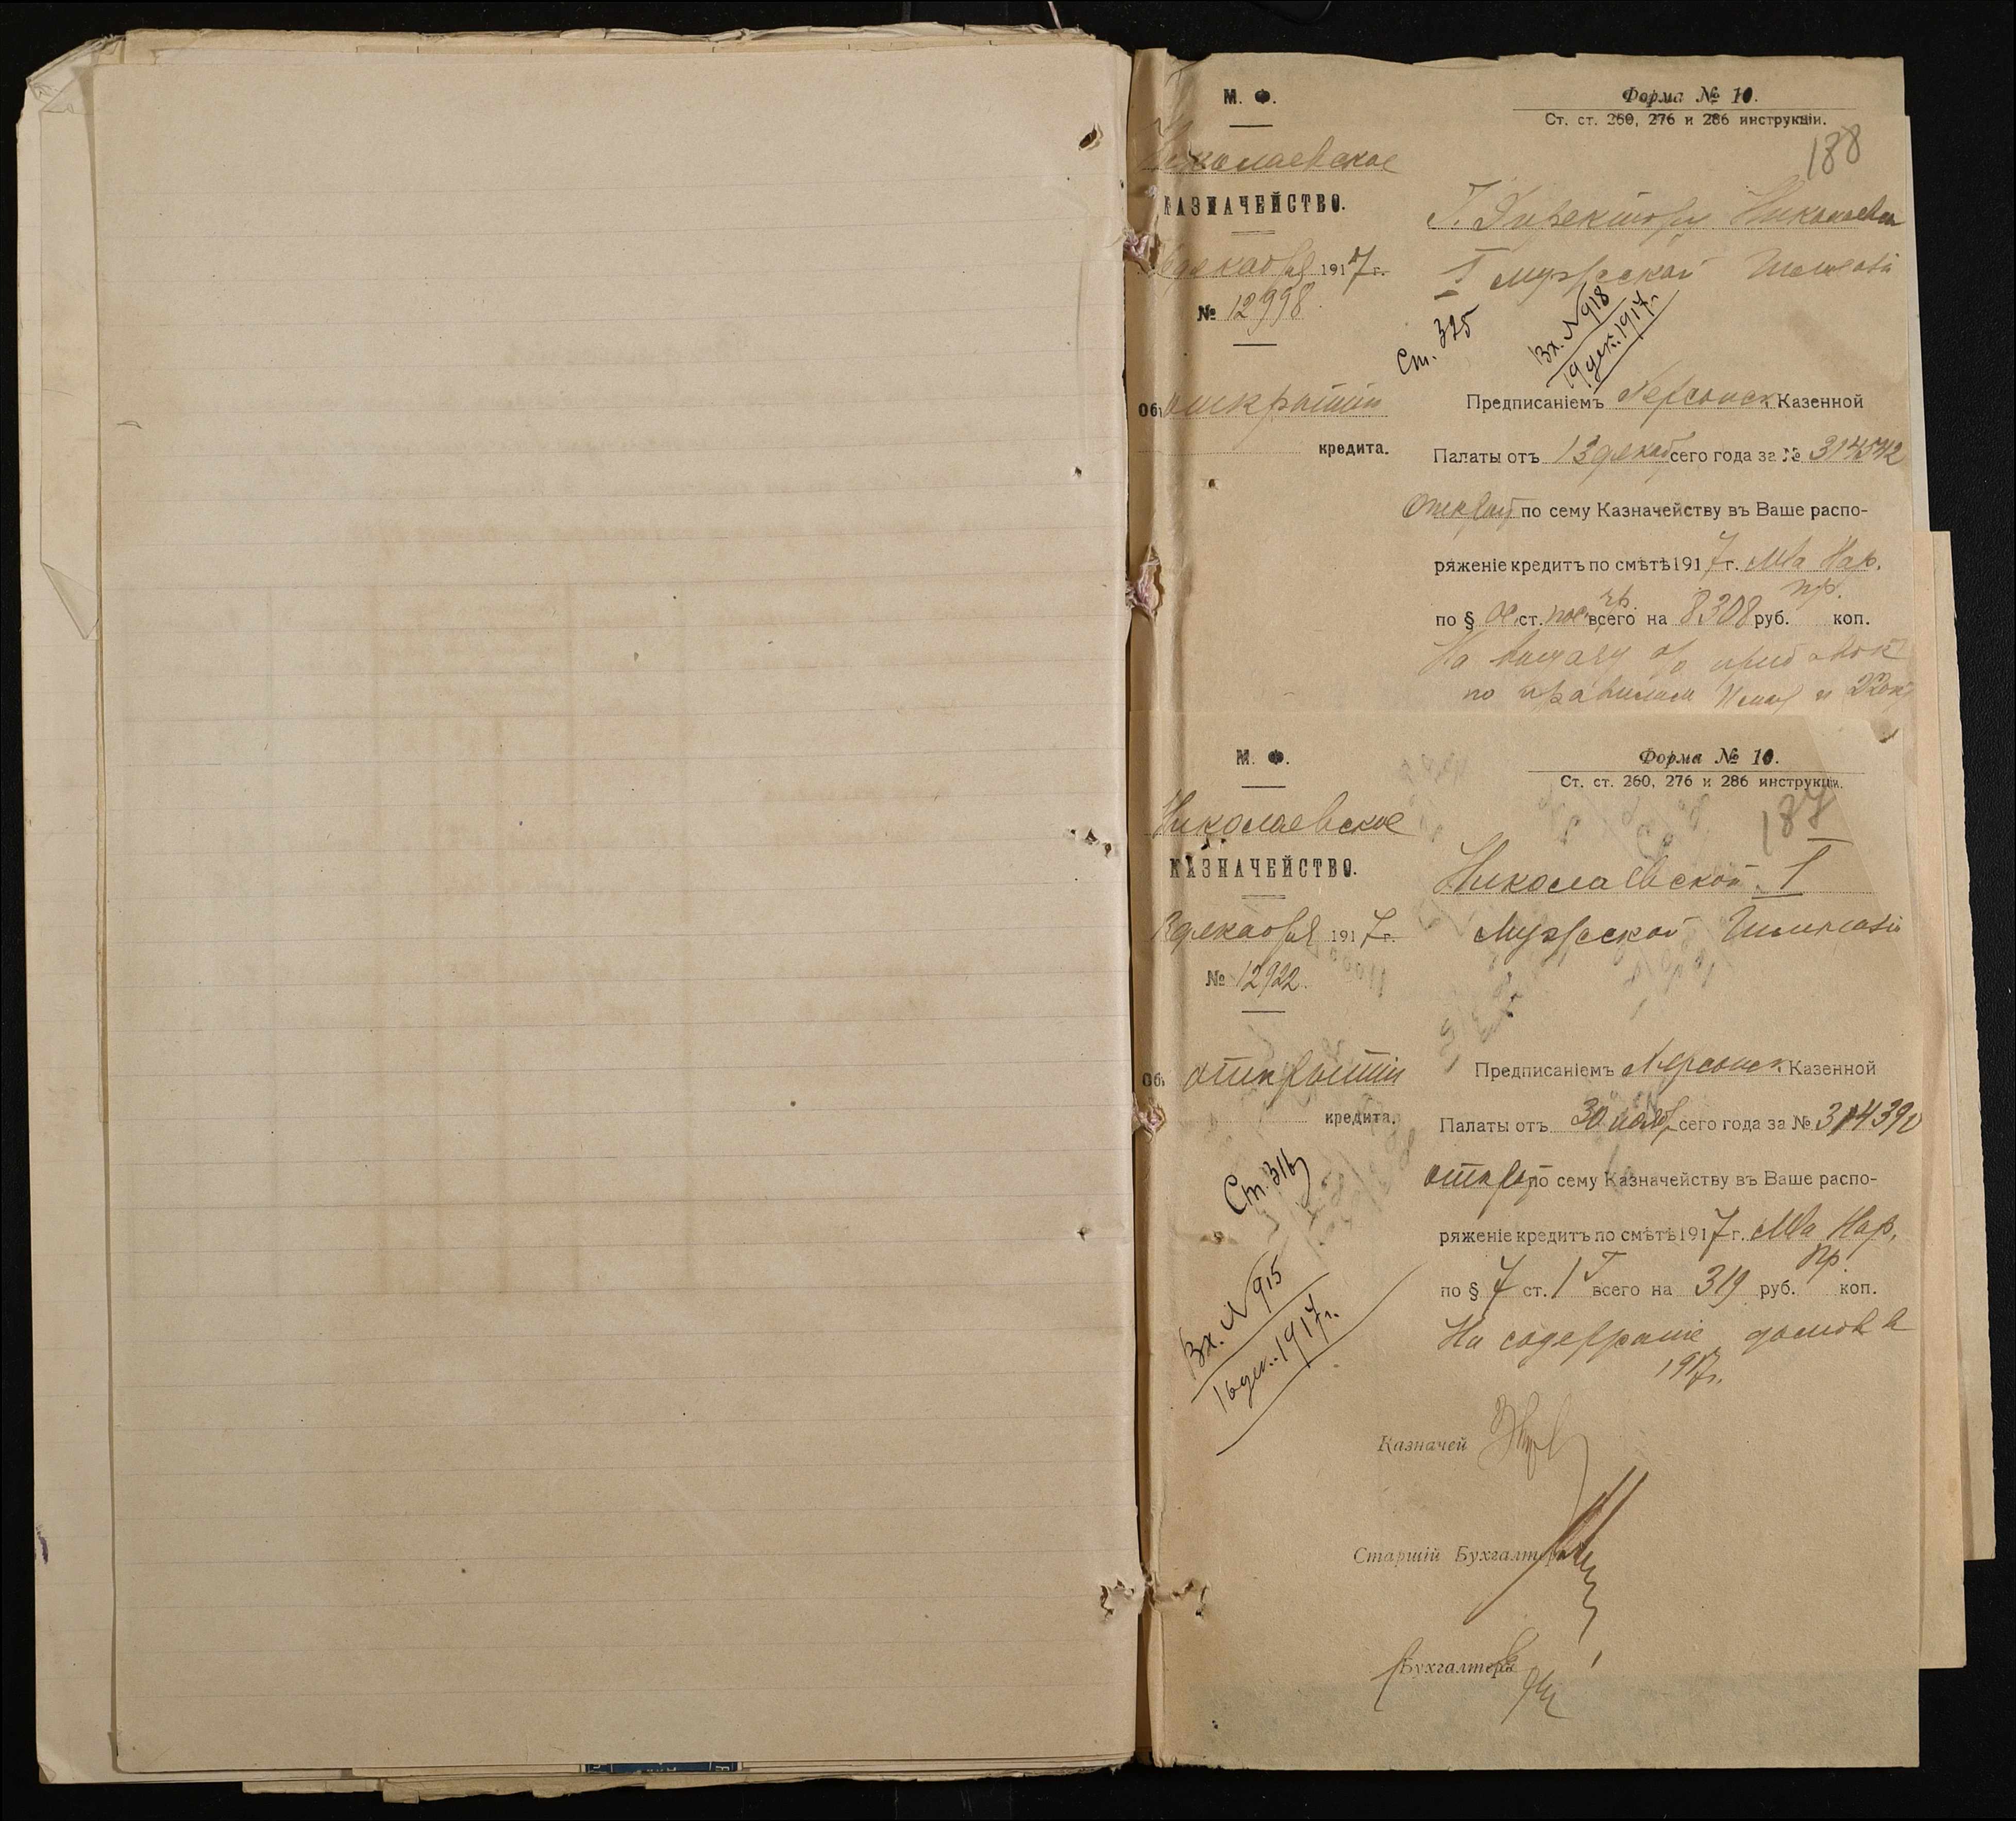 М. Ф.
Форма № 10.
Ст. ст. 260, 276 и 286 инструкціи.
188
Николаевское
КАЗНАЧЕЙСТВО.
Г. Директору Николаевск
I мужской Гимназіи
декабря 1917 г.
№ 12998
Ст. 325
Вх. № 918
19 дек. 1917 г.
Объ открытіи
кредита.
Предписаніемъ Херсонск. Казенной
Палаты отъ 13 декаб сего года за № 314542
открыт по сему Казначейству въ Ваше распо-
ряженіе кредитъ по смѣтѣ 1917 г. М-ва Нар.
пр.
по § ст. всего на 8308 руб. коп.
На выдачу %
по правиламъ
М. Ф.
Форма № 10.
Ст. ст. 260, 276 и 286 инструкціи.
187
Николаевское
КАЗНАЧЕЙСТВО.
Николаевской I
Мужской Гимназіи
декабря 1917 г.
№ 12922.
Объ открытіи
кредита.
Предписаніемъ Херсонск. Казенной
Палаты отъ 30 нояб сего года за № 314390
открыт по сему Казначейству въ Ваше распо-
ряженіе кредитъ по смѣтѣ 1917 г. М-ва Нар.
пр.
по § 7 ст. 1 всего на 319 руб. коп.
На содержаніе домов в
1917 г.
Ст. 316
Вх. № 915
16 дек. 1917 г.
Казначей
Старшій Бухгалтеръ
Бухгалтеръ